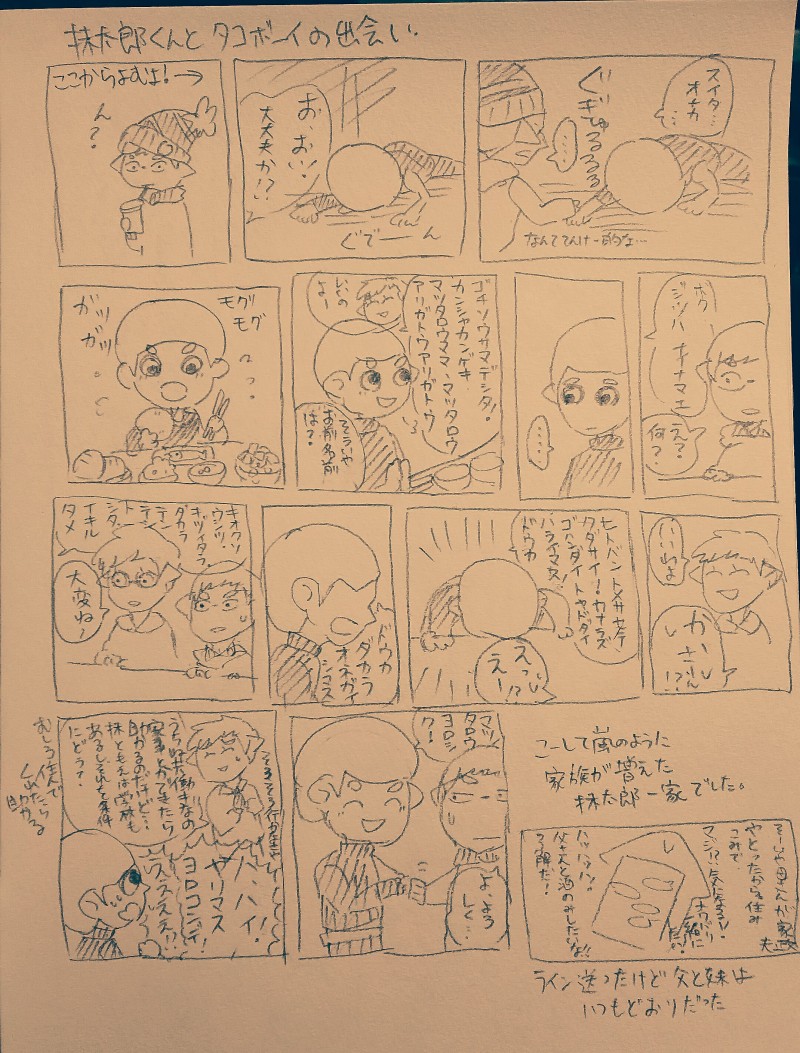 抹太郎くんとタコボーイの出会い
ここからよむよ!→
ん?
お、おい!
大丈夫か!?
ぐでーーん
スイタ…
オナカ…
ぐぎゅるるるる
なんててんけー的な…
ガツ
ガツ
モグ
モグ
いいのよー
ゴチソウサマデシタ!
カンシャカンゲキ
マツタロウママ、マツタロウ
アリガトウアリガトウ
そういや
お前名前
は?
……
ボク…
ジツハ
ナマエ
え?
何?
キオクソ
ウシツ!
ギヅイタラ
ダカラ
テン
テシ
ト
シタ
イキル
タメ
大変ねー
ドウカ
ダカラ
オネガイ
シマス
ヒトバントメサセテ
クダサイ!カナラズ
ゴハンダイトヤドダイ
ハライマス!
ドウカ
えっ!?
えー!
いいわよ
かあさん!?
そろそろ行かなきゃ
うちね共働きなの
家事とかできたら
助かるのだけど…
抹ともえは学校も
あるしそれを条件
にどう?
むしろ住んで
くれたら
助かる
ハ、ハイ!
ヤリマス
ヨロコンデ!
マツ
タロウ
ヨロシ
ク!
よ、よろ
しく…
こーして嵐のように
家族が増えた
抹太郎一家でした。
そーいや母さんが家政夫
やとったから住み
こみで。
マジ!?気になる!
ナワバリ
一緒に
ハッハッハッ。
父さんと酒のみしたいな!!
了解だ!
ライン送ったけど父と妹は
いつもどおりだった